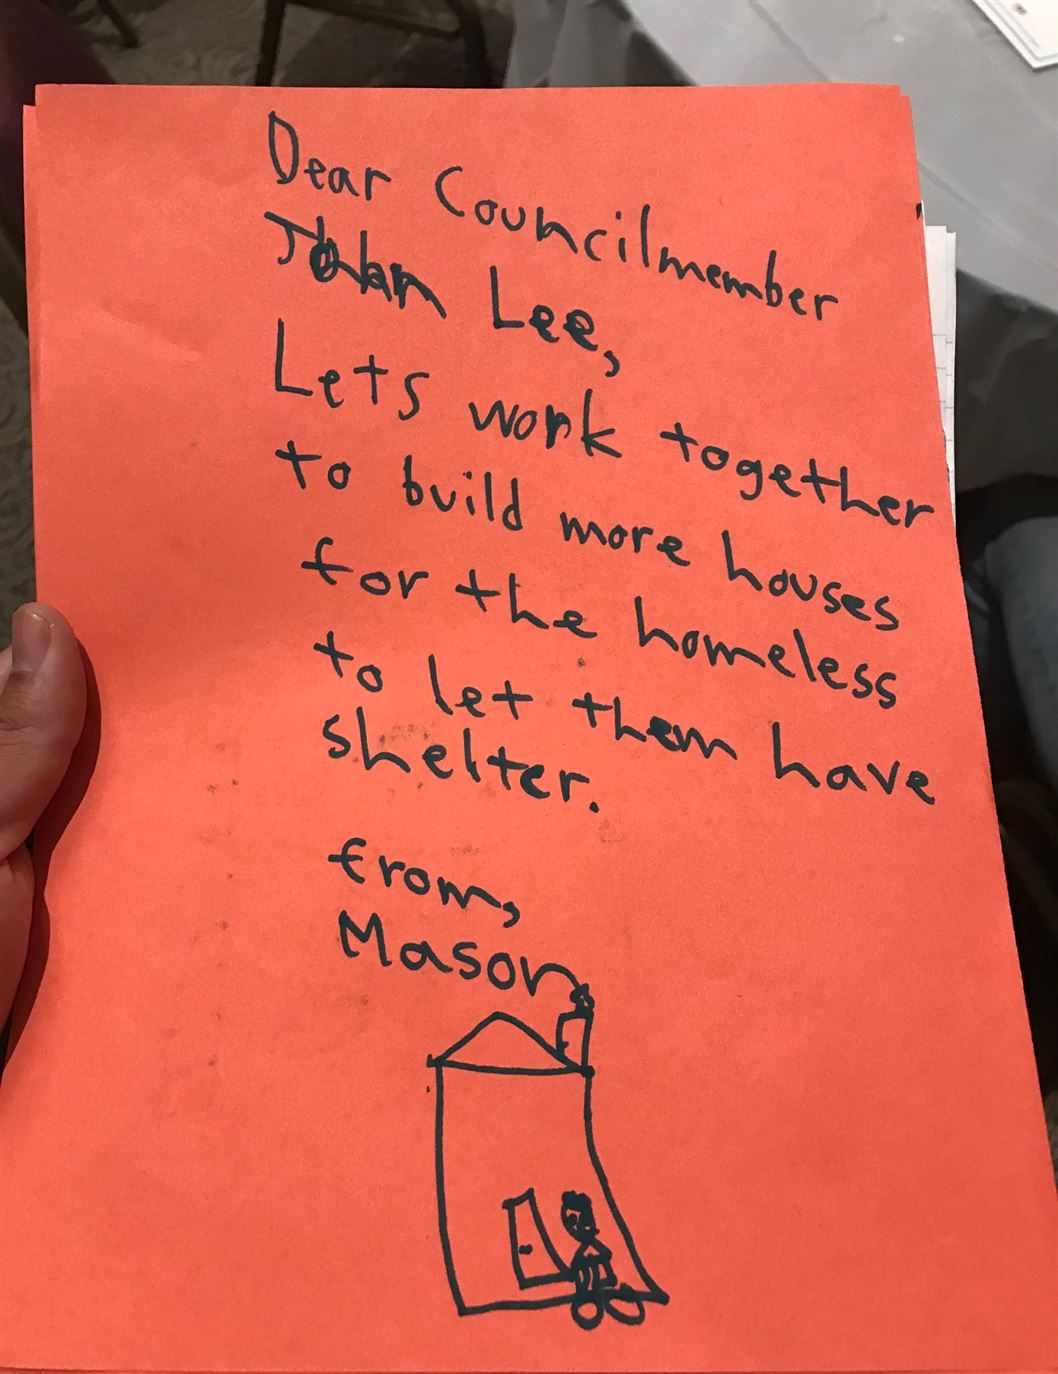 Dear Councilmember
John Lee,
Lets work together
to build more houses
for the homeless
to let them have
shelter.
from,
Mason